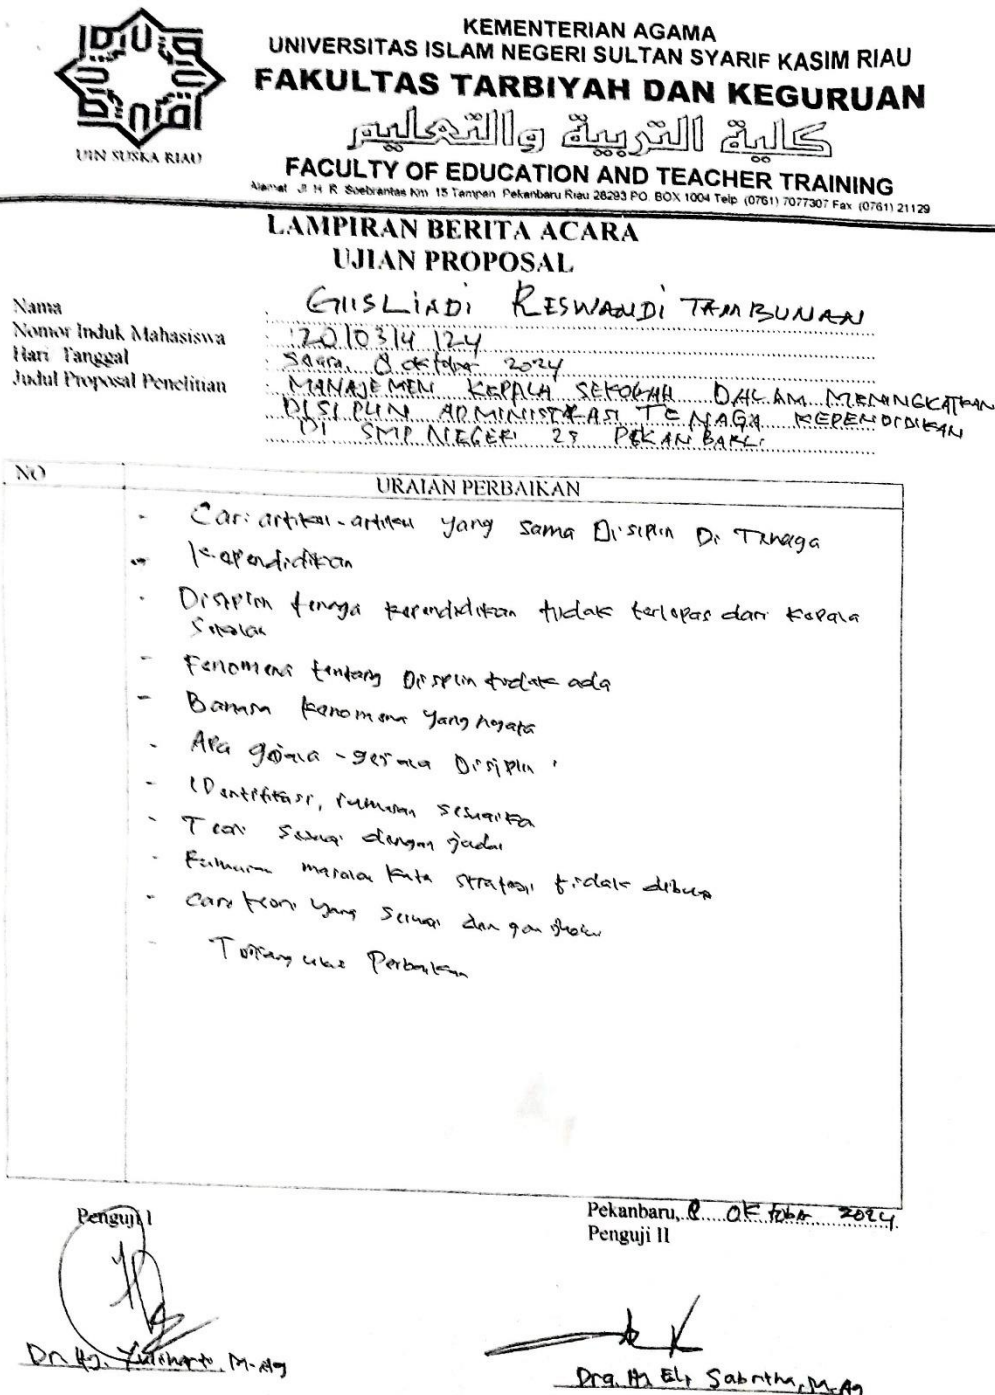 KEMENTERIAN AGAMA
UNIVERSITAS ISLAM NEGERI SULTAN SYARIF KASIM RIAU
FAKULTAS TARBIYAH DAN KEGURUAN
كلية التربية والتعليم
FACULTY OF EDUCATION AND TEACHER TRAINING
UIN SUSKA RIAU
Alamat Jl H R Soebrantas Km 15 Tampan Pekanbaru Riau 28293 PO. BOX 1004 Telp (0761) 7077307 Fax (0761) 21129
LAMPIRAN BERITA ACARA
UJIAN PROPOSAL
Nama : RESWANDI TAMBUNAN
Nomor Induk Mahasiswa : 12010314124
Hari Tanggal : 8 oktober 2024
Judul Proposal Penelitian : MANAJEMEN KEPALA SEKOLAH DALAM MENINGKATKAN
DISIPLIN ADMINISTRASI TENAGA KEPENDIDIKAN
DI SMP NEGERI PEKANBARU
NO URAIAN PERBAIKAN
- Cari artikel-artikel yang sama Disiplin Di Tenaga
- Kependidikan
- Disiplin tenaga kependidikan tidak terlepas dari Kepala
Sekolah
- Fenomena tentang Disiplin tidak ada
- fenomena yang nyata
- Apa gejala-gejala Disiplin
- IDentifikasi, rumusan
- Teori sesuai dengan judul
- masalah kata strategi tidak
- cari teori yang sesuai dengan
- Perbaikan
Pekanbaru, 8 Oktober 2024
Penguji I
Penguji II
M.Ag
Dra. M.Ag